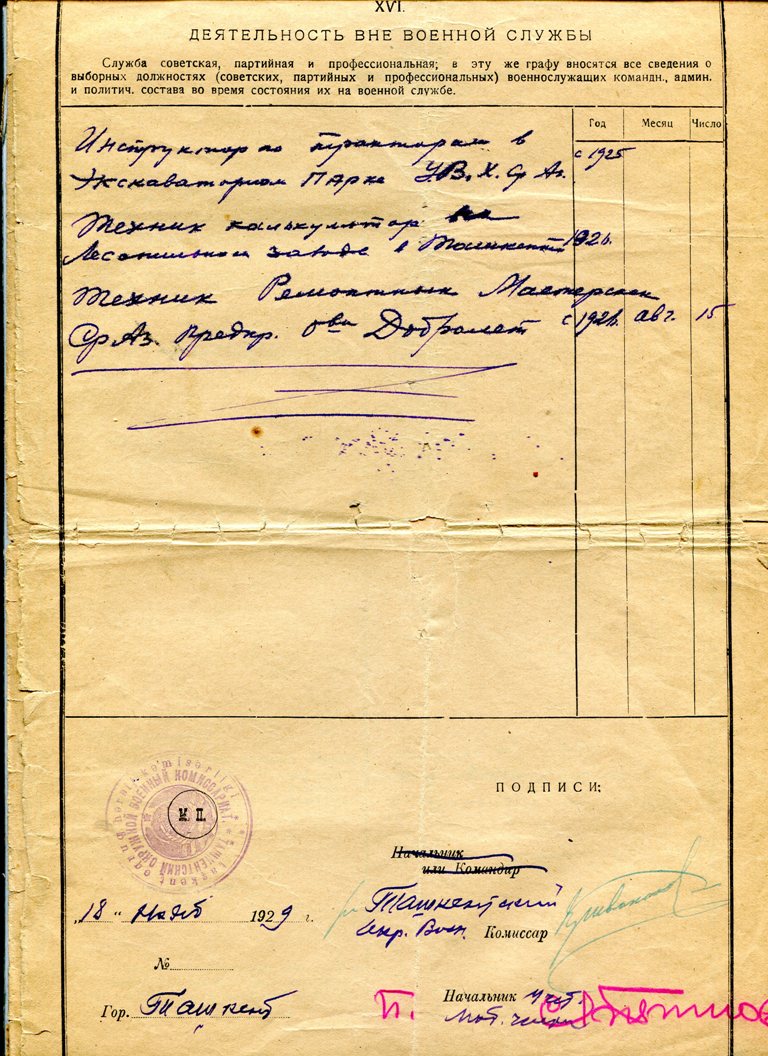 XVI.
ДЕЯТЕЛЬНОСТЬ ВНЕ ВОЕННОЙ СЛУЖБЫ
Служба советская, партийная и профессиональная; в эту же графу вносятся все сведения о
выборных должностях (советских, партийных и профессиональных) военнослужащих командн., админ.
и политич. состава во время состояния их на военной службе.
Год Месяц Число
Инструктор по тракторам в
Экскаваторном Парке У.В.Х. Ср. Аз. с 1925
Техник калькулятор на
Лесопильном заводе в Ташкенте
Техник Ремонтных Мастерских
Ср. Аз. предпр. о-ва Добролет с авг. 15
ташкентский окружной военный комиссариат
М. П.
ПОДПИСИ:
Начальник
или Командир
„18" нояб 1929 г.
Ташкентский
Окр. Воен. Комиссар
№
Гор. Ташкент
п. Начальник Учет.
Моб. части